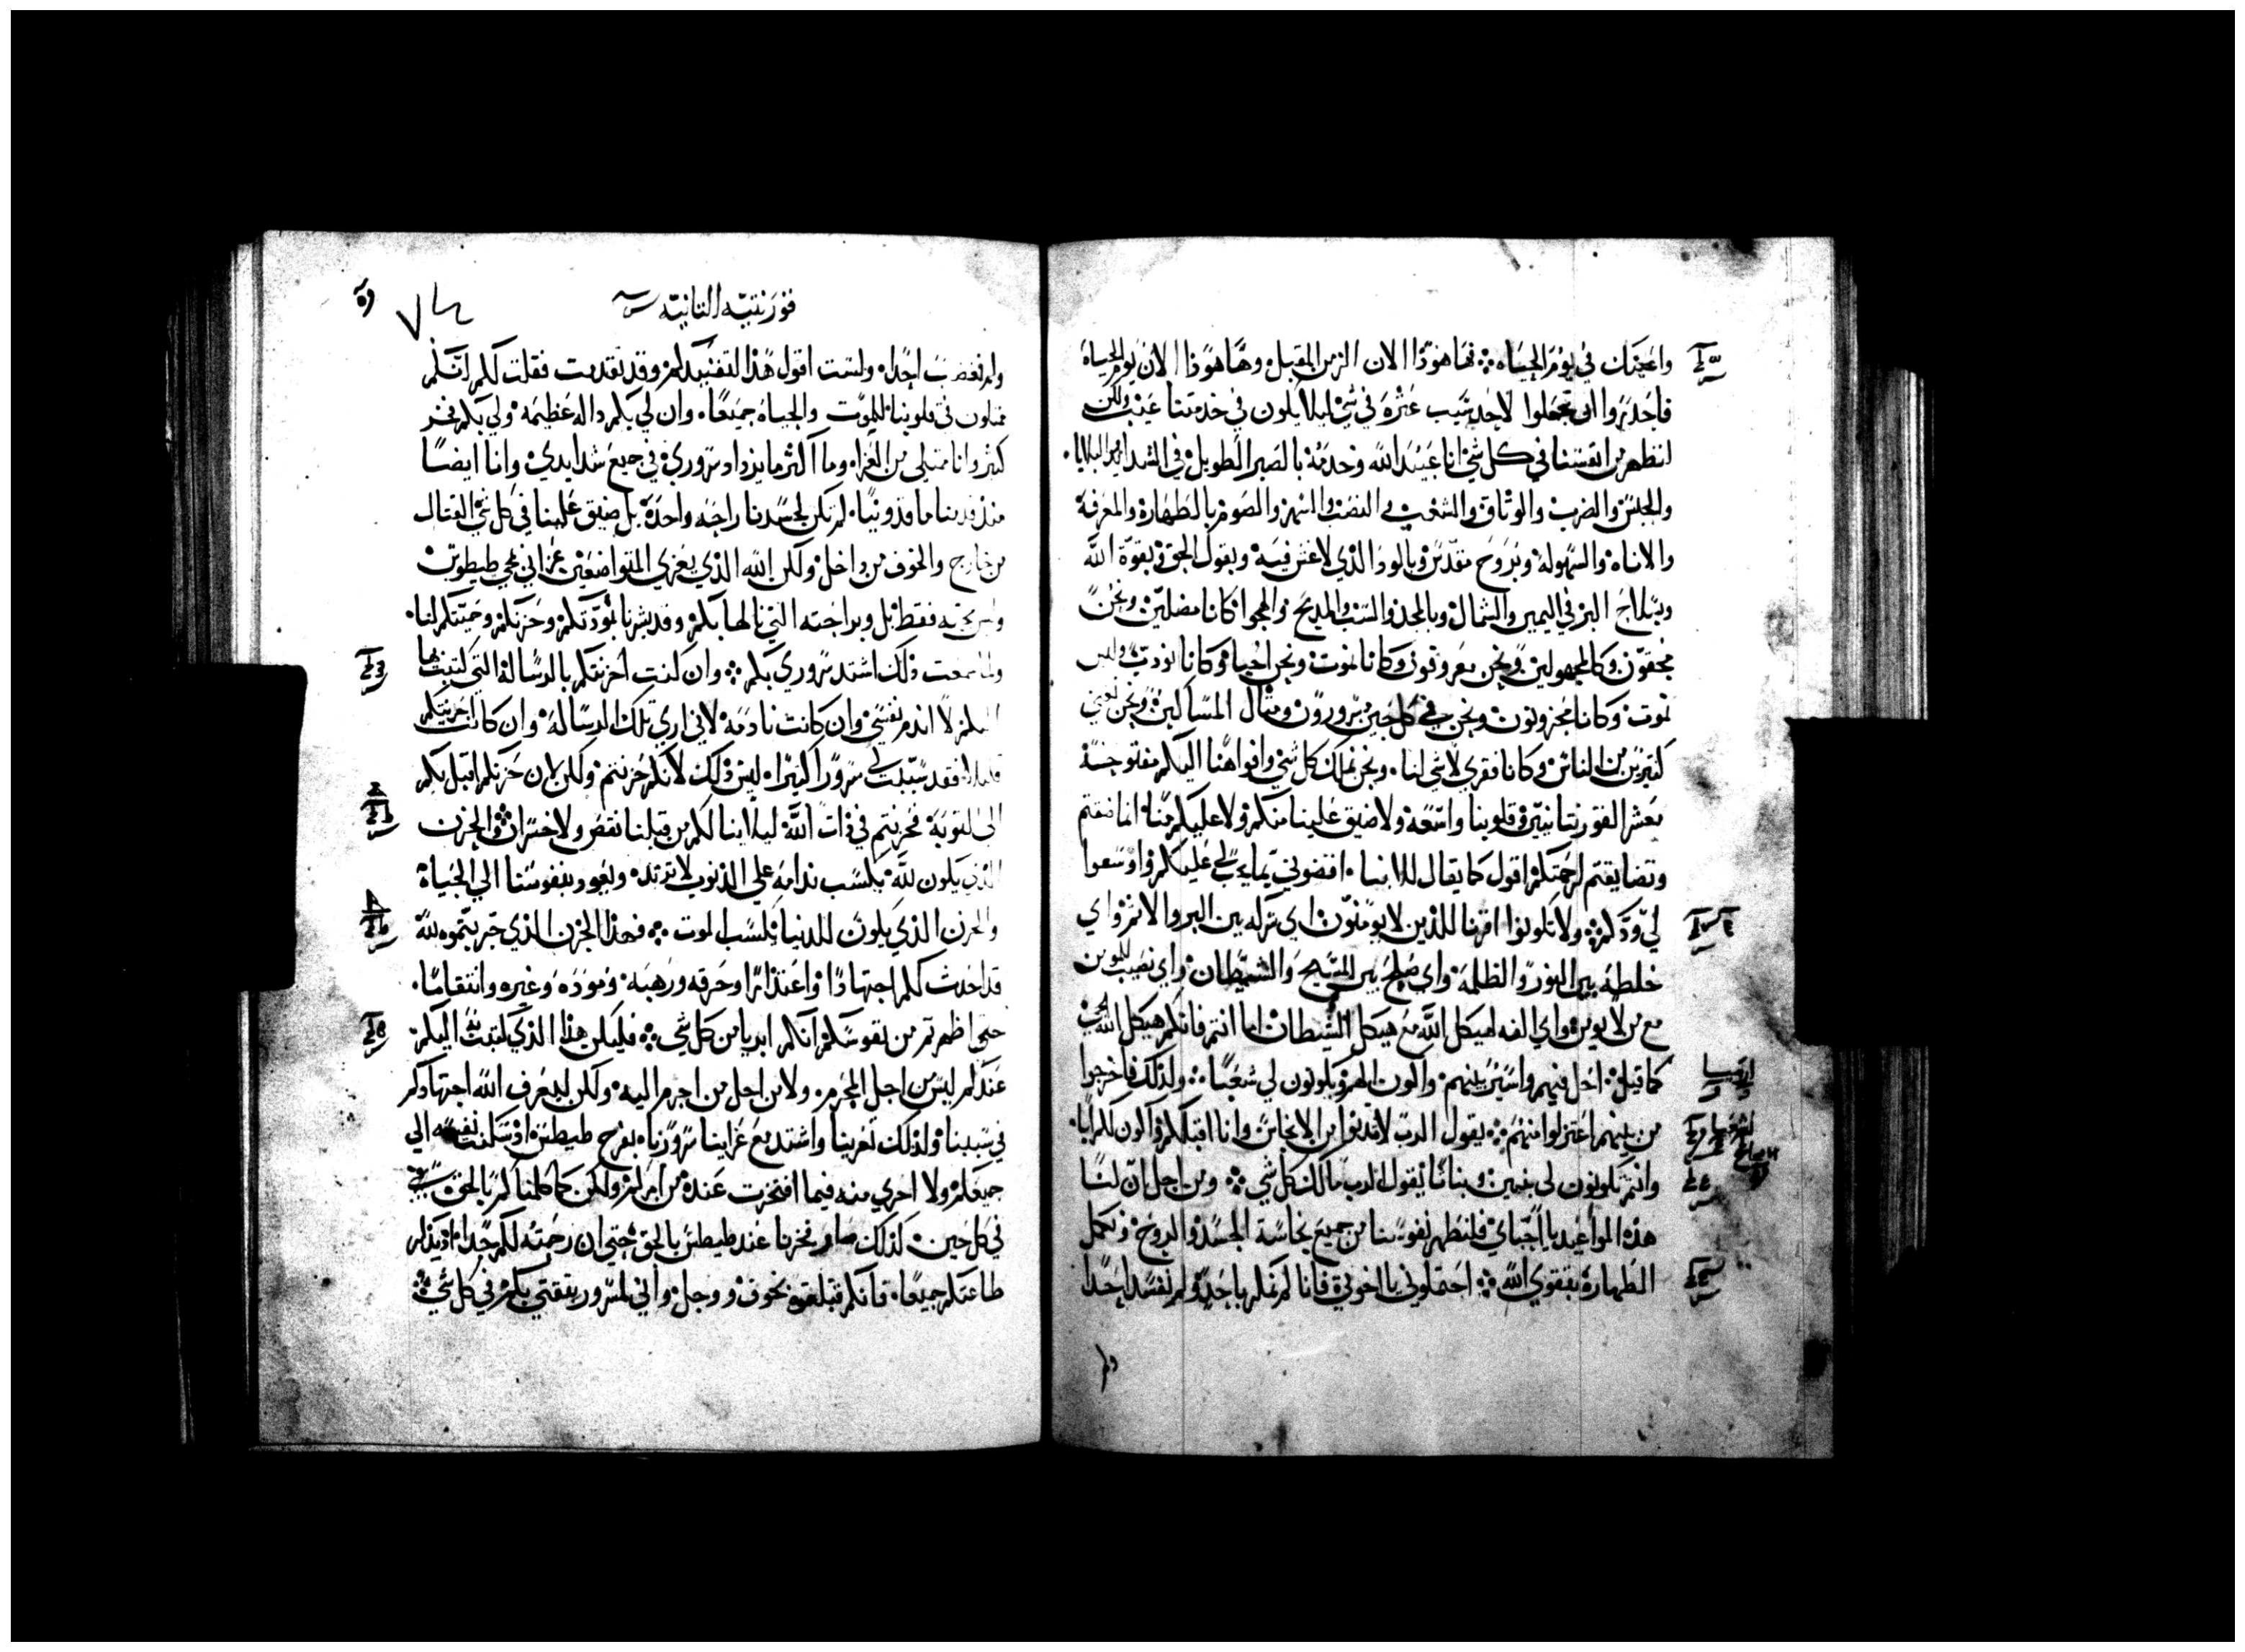 واعنتك في يوم الحياه ܀ فها هوذا الان الزمن المقبل وها هوذا الان يوم الحياه
فاحذروا ان تجعلوا لاحد سبب عثره في شي ليلا يكون في خدمتنا عيب ولكن
لنظهر انفسنا في كل شي انا عبيد الله وخدمه بالصبر الطويل في الشدايد البلايا
والحبس والضرب والوثاق والشغب والنصب والسهر والصوم بالطهاره والمعرفه
والاناه والسهوله وبروح مقدس وبالود الذي لا غش فيه وبقول الحق بقوة الله
وبسلاح البر في اليمين والشمال وبالمجد والسب والمديح والهجوا كانا مضلين ونحن
محقون وكالمجهولين ونحن معروفون وكانا نموت ونحن احيا وكانا نودب وليس
نموت وكانا محزونون ونحن في كل حين مسرورون ومثال المساكين ونحن نغني
كثيرين من الناس وكانا فقري لا شي لنا ونحن نملك كل شي وافواهنا اليكم مفتوحة
معشر القورنتانيين وقلوبنا واسعه ولا ضيق عليكم منا انما ضقتم
وتضايقتم لرحمتكم اقول كما يقال للابنا اقضوني بمالي عليكم واوسعوا
لي ودكم ܀ ولا تكونوا اقرنا للذين لا يومنون اي شركه بين البر والاثم واي
خلطة بين النور والظلمه واي صلح بين المسيح والشيطان واي نصيب للمومن
مع من لا يومن واي الفه لهيكل الله مع هيكل الشيطان اما انتم فانكم هيكل الله الحي
كما قيل احل فيهم واسير بينهم واكون الههم ويكونون لي شعبا ܀ ولذلك فاخرجوا
من بينهم اعتزلوا منهم ܀ يقول الرب لا تدنوا من الانجاس وانا اقبلكم واكون لكم ابا
وانتم تكونون لي بنين وبنات يقول الرب مالك كل شي ܀ ومن اجل ان لنا
هذه المواعيد يا احباي فلنطهر نفوسنا من جميع نجاسة الجسد والروح ونكمل
الطهارة بتقوي الله ܀ احتملوني يا اخوتي فانا لم نمكر باحد ولم نفسد احدا
ولم
قورنتيه الثانية
ولم نغضب احدا ولست اقول هذا لتفنيدكم وقد تقدمت فقلت لكم انكم
ممكنون في قلوبنا للموت والحياه جميعا وان لي بكم داله عظيمه ولي بكم فخر
كثير وانا ممتلي من العزا وما اكثر ما يزداد سروري في جميع شدايدي وانا ايضا
منذ قدمنا ماقدونيا لم تكن لجسدنا راحه واحدة بل ضيق علينا في كل شي القتال
من خارج والخوف من داخل ولكن الله الذي يعزي المتواضعين عزاني بمجي طيطوس
وليس بمجيه فقط بل وبراحته التي نالها بكم وقد بشرنا بمودتكم وحزنكم وحميتكم لنا
ولما سمعت ذلك اشتد سروري بكم ܀ وان كنت احزنتكم بالرسالة التي كتبت بها
اليكم لا اندم نفسي وان كانت نادمه لاني اري تلك الرساله وان كانت احزنتكم
قليلا فقد سببت لي سرورا كثيرا ليس ذلك لانكم حزنتم ولكن لان حزنكم اقبل بكم
الى التوبة فحزنتم في ذات الله ليلا ينالكم من قبلنا نقص ولا خسران ܀ والحزن
الذي يكون لله يكسب ندامه علي الذنوب لا ترتد ويقود بنفوسنا الي الحياة
والحزن الذي يكون للدنيا يكسب الموت ܀ فهذا الحزن الذي حزنتموه لله
قد احدث لكم اجتهادا واعتذارا وحرقه ورهبه ومودة وغيره وانتقاما
حتي اظهرتم من نفوسكم انكم ابريا من كل شي ܀ فليكن هذا الذي كتبت به اليكم
عندكم ليس من اجل المجرم ولا من اجل من اجرم اليه ولكن ليعرف الله اجتهادكم
في سببنا ولذلك تعزينا واشتد مع عزاينا سرورنا بفرح طيطس اذ سكنت نفسه الي
جميعكم ولا اخزي منه فيما افتخرت عنده من امركم ولكن كما كلمناكم بالحق
في كل حين كذلك صار فخرنا عند طيطس بالحق حتي ان رحمته لكم جدا اذ يذكر
طاعتكم جميعا فانكم قبلتموه بخوف ووجل واني لمسرور بثقتي بكم في كل شي ܀